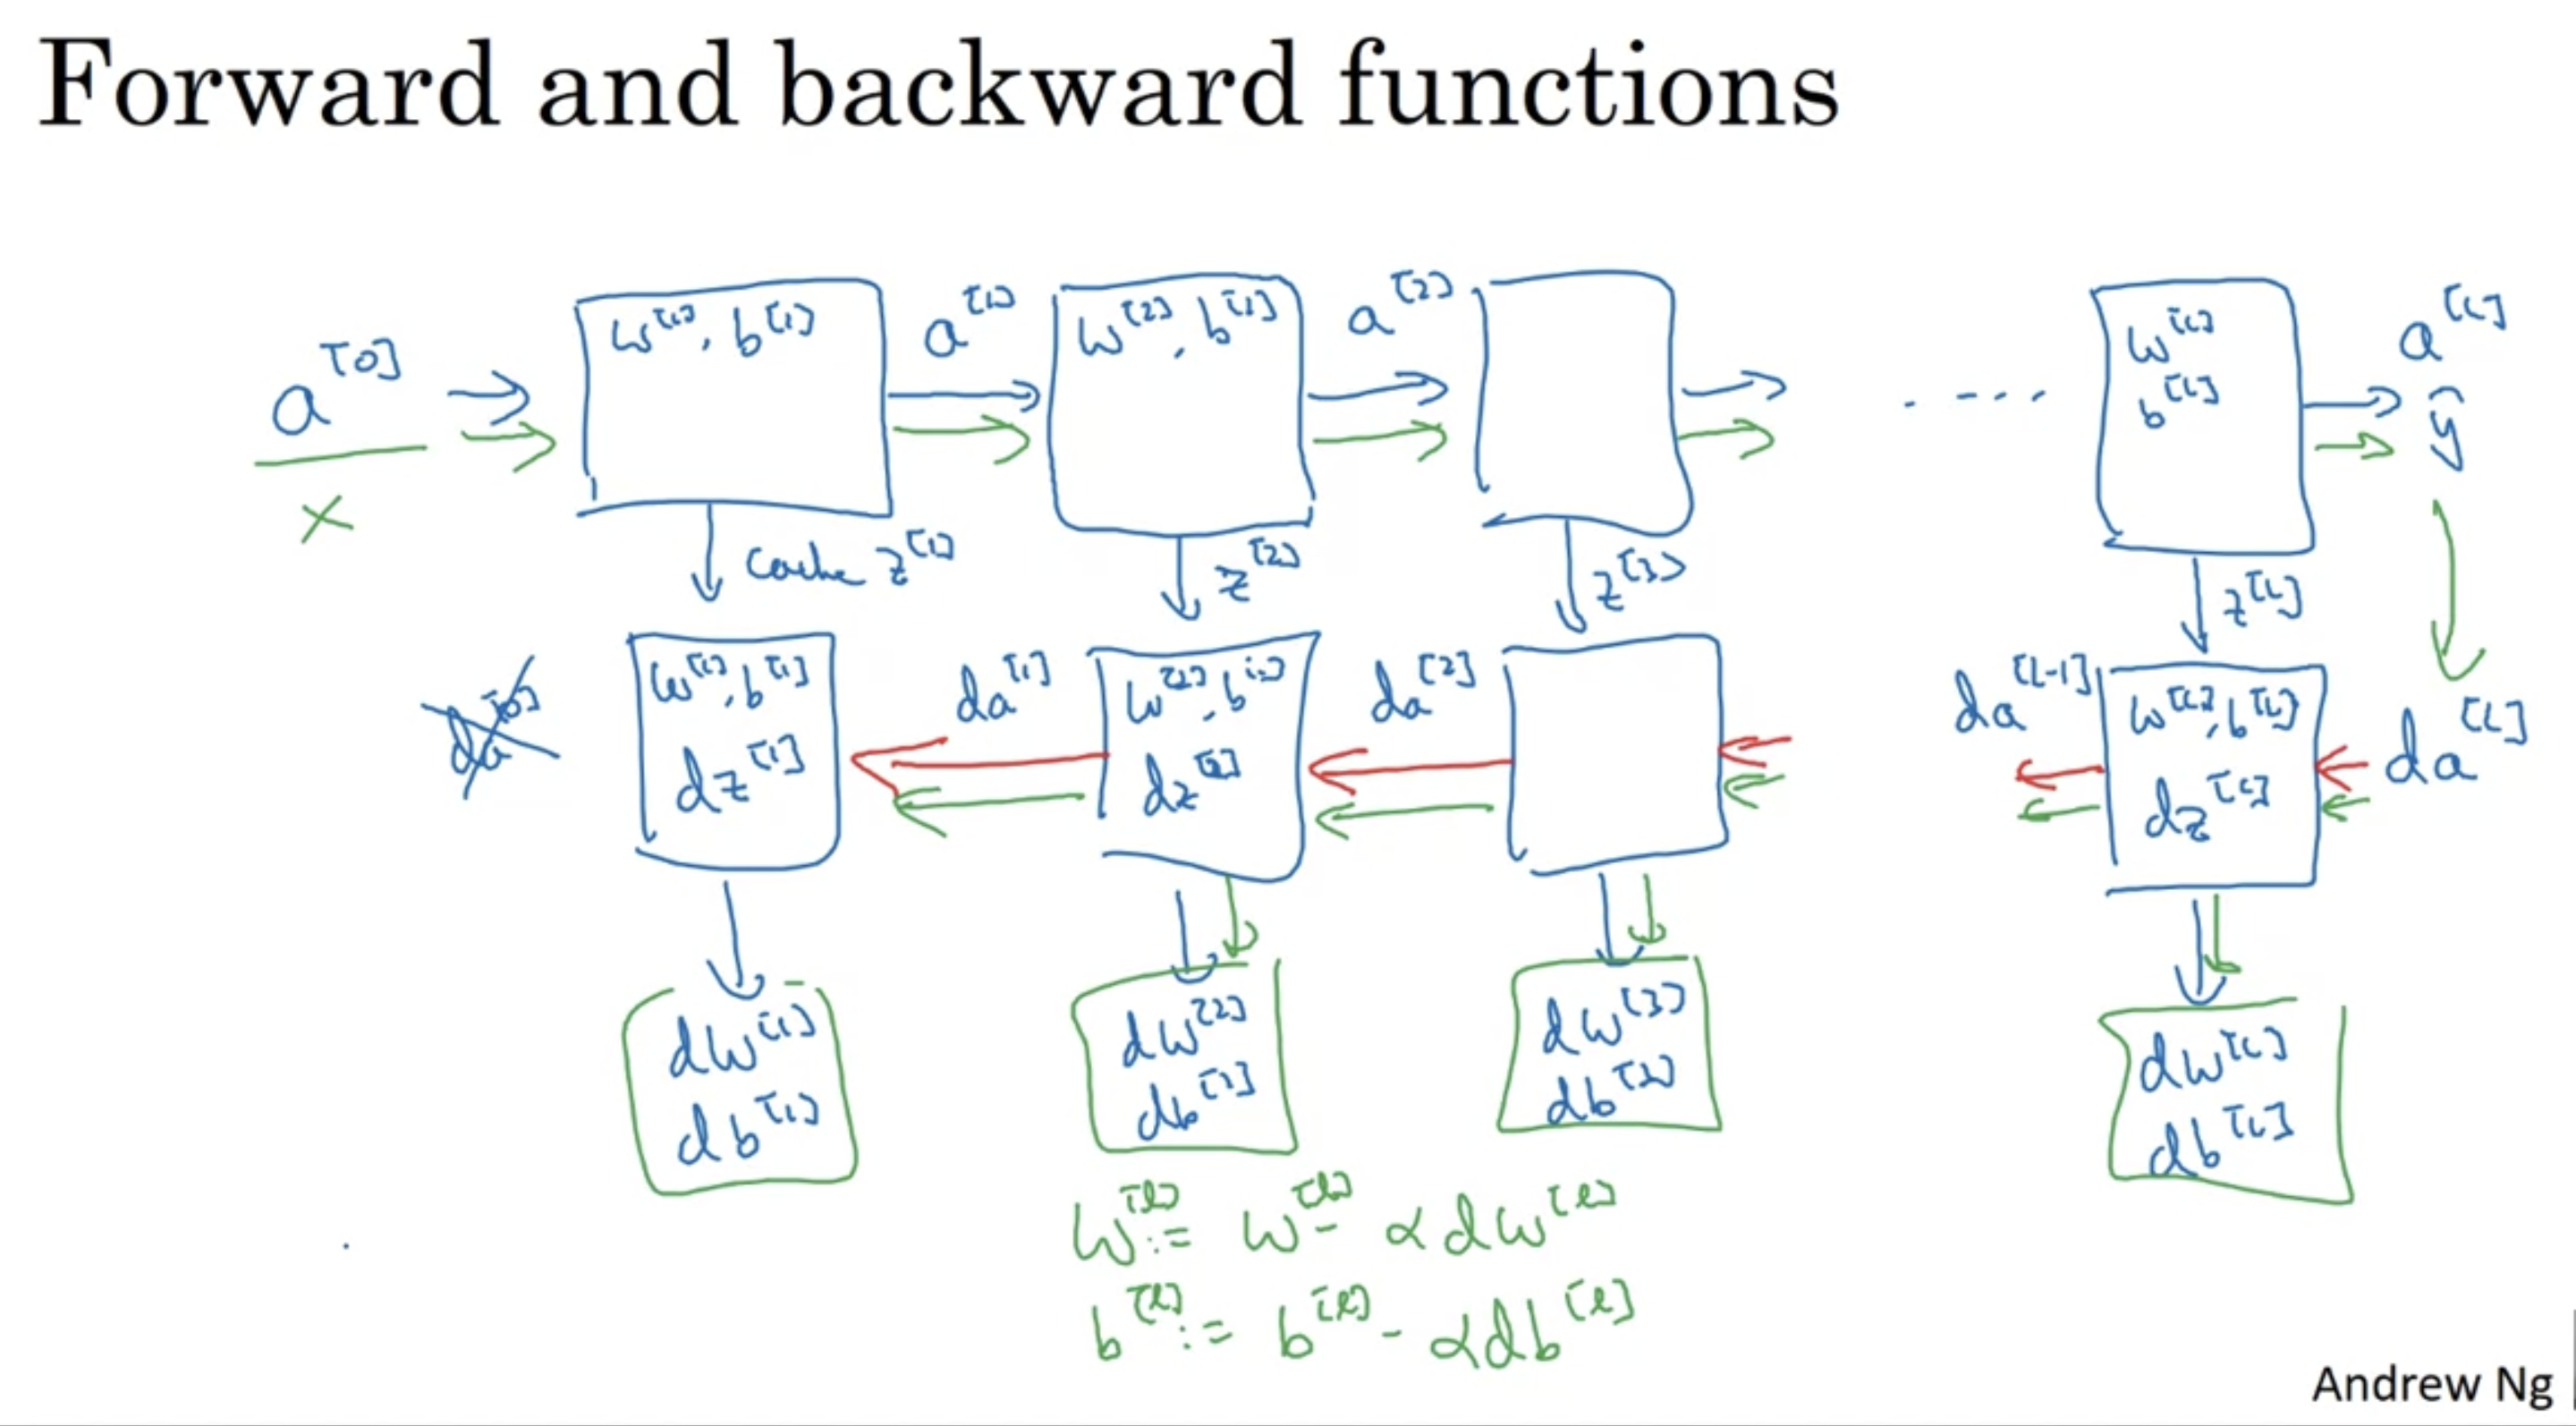 Forward and backward functions
a^[0]
x
w^[1], b^[1]
a^[1]
w^[2], b^[2]
a^[2]
w^[L]
b^[L]
a^[L]
ŷ
cache z^[1]
z^[2]
z^[3]
z^[L]
da^[0]
w^[1], b^[1]
dz^[1]
da^[1]
w^[2], b^[2]
dz^[2]
da^[2]
da^[L-1]
w^[L], b^[L]
dz^[L]
da^[L]
dw^[1]
db^[1]
dw^[2]
db^[2]
dw^[3]
db^[3]
dw^[L]
db^[L]
W^[l] := W^[l] - αdw^[l]
b^[l] := b^[l] - αdb^[l]
Andrew Ng